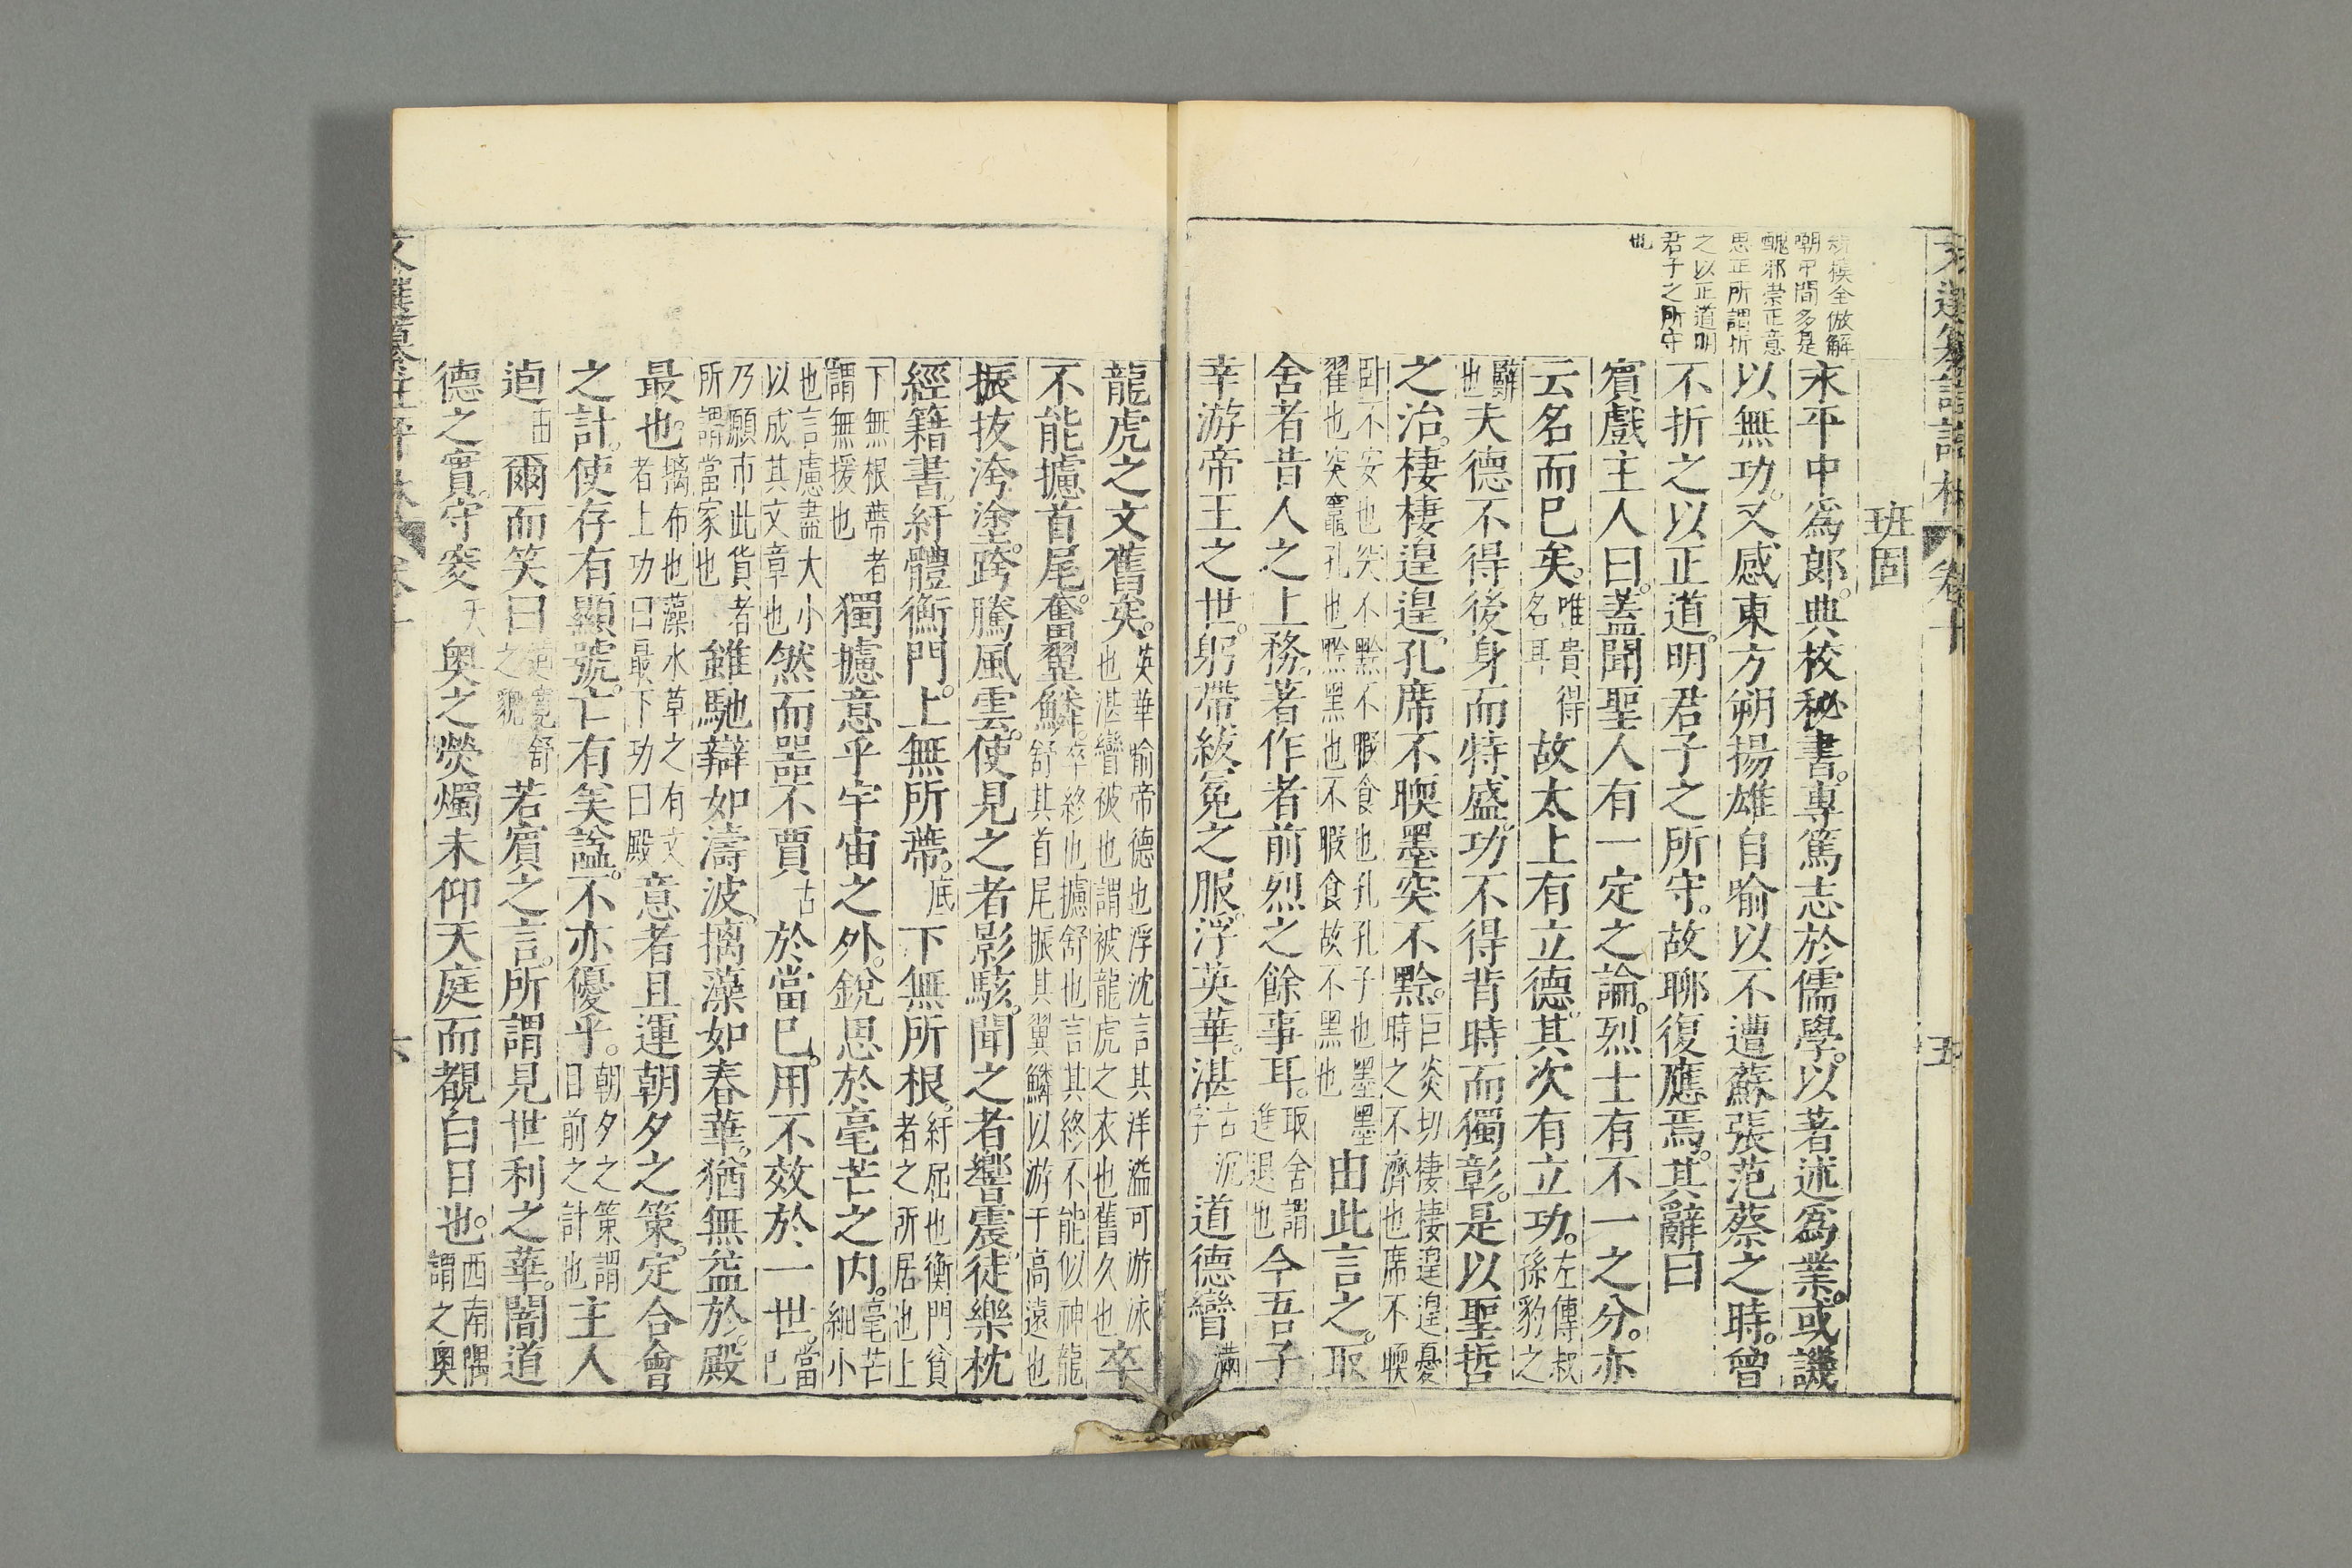 規模全倣解
嘲中間多是
醜邪崇正意
思正所謂折
之以正道明
君子之所守
也
班固
永平中為郎。典校秘書。專篤志於儒學。以著述為業。或譏
以無功。又感東方朔揚雄自喻以不遭蘇張范蔡之時。曾
不折之以正道。明君子之所守。故聊復應焉。其辭曰
賓戲主人曰。蓋聞聖人有一定之論。烈士有不一之分。亦
云名而已矣。唯貴得名耳故太上有立德。其次有立功。左傳叔孫豹之
辭也夫德不得後身而特盛。功不得背時而獨彰。是以聖哲
之治。棲棲遑遑。孔席不暝。墨突不黔。巨炎切棲棲遑遑憂時之不濟也席不暝
臥不安也突不黔不暇食也孔孔子也墨墨翟也突竈孔也黔黑也不暇食故不黑也由此言之。取
舍者昔人之上務。著作者前烈之餘事耳。取舍謂進退也今吾子
幸游帝王之世。躬帶紱冕之服。浮英華。湛古沉字道德。巒滿
龍虎之文舊矣。英華喻帝德也浮沈言其洋溢可游泳也湛巒被也謂被龍虎之衣也舊久也卒
不能攄首尾。奮翼鱗。卒終也攄舒也言其終不能似神龍舒其首尾振其翼鱗以游于高遠也
振抜洿塗。跨騰風雲。使見之者影駭。聞之者響震。徒樂枕
經籍書。紆體衡門。上無所蔕。底下無所根。紆屈也衡門貧者之所居也上
下無根蔕者謂無援也獨攄意乎宇宙之外。銳思於毫芒之内。毫芒細小
也言慮盡大小以成其文章也然而器不賈古於當己。用不效於一世。當己
乃願市此貨者所謂當家也雖馳辯如濤波。摛藻如春華。猶無益於殿
最也。摛布也藻水草之有文者上功曰最下功曰殿意者且運朝夕之策。定合會
之計。使存有顯號。亡有美諡。不亦優乎。朝夕之策謂目前之計也主人
逌由爾而笑曰逌寬舒之貌若賓之言。所謂見世利之華。闇道
德之實。守窔夭奥之熒燭未仰天庭而覩白日也。西南隅謂之奥